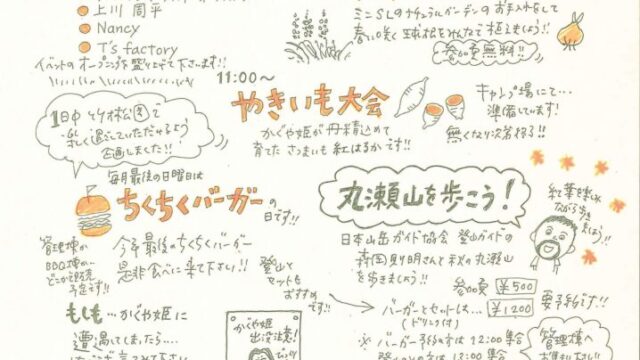 上川 周平
Nancy
T's factory
イベントのオープニングを盛り上げて下さいます!!
ミニSLのナチュラルガーデンのお手入れをして
春に咲く球根をみんなで植えましょう!!
参加費無料!!
11:00〜
やきいも大会
かぐや姫が丹精込めて
育てたさつまいも紅はるかです!!
キャンプ場にて…
準備しています!
無くなり次第終了!!
1日中竹松きで
楽しく過ごしていただけるよう
企画しました!!
毎月最後の日曜日は
ちくちくバーガーの
日です!!
管理棟の
BBQ棟の…
どこかで販売
予定です!!
今年最後のちくちくバーガー
是非食べに来て下さい!!
登山と
セットも
おすすめ
です!!
もしも…かぐや姫に
遭遇してしまったら…
かぐや姫
出没注意!
丸瀬山を歩こう!
紅葉を楽しみ
ながら歩き
ましょう!!
日本山岳ガイド協会 登山ガイドの
さんと秋の丸瀬山
を歩きましょう!!
参加費 ¥500
バーガーとセットは… ¥1200
(ドリンク付)
要予約です!!
※ バーガー予約の方は12:00集合
の方は13:00集合
管理棟へ